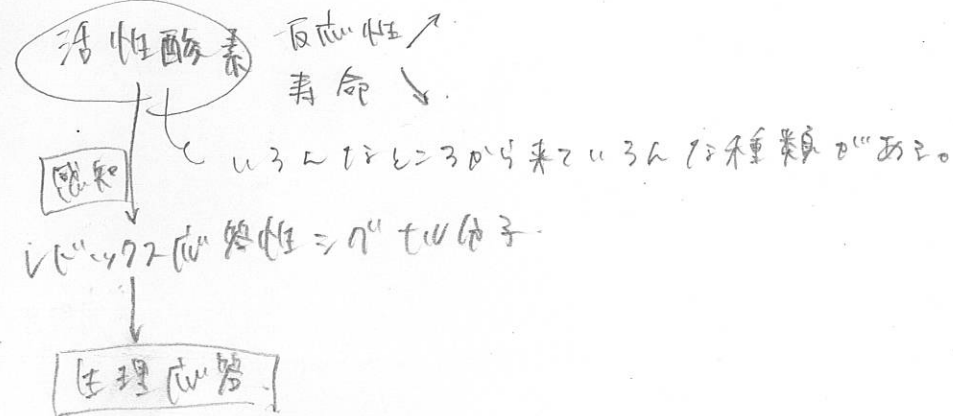 活性酸素
反応性↗
寿命↘
いろんなところから来ていろんな種類がある。
感知
レドックス応答性シグナル分子
生理応答